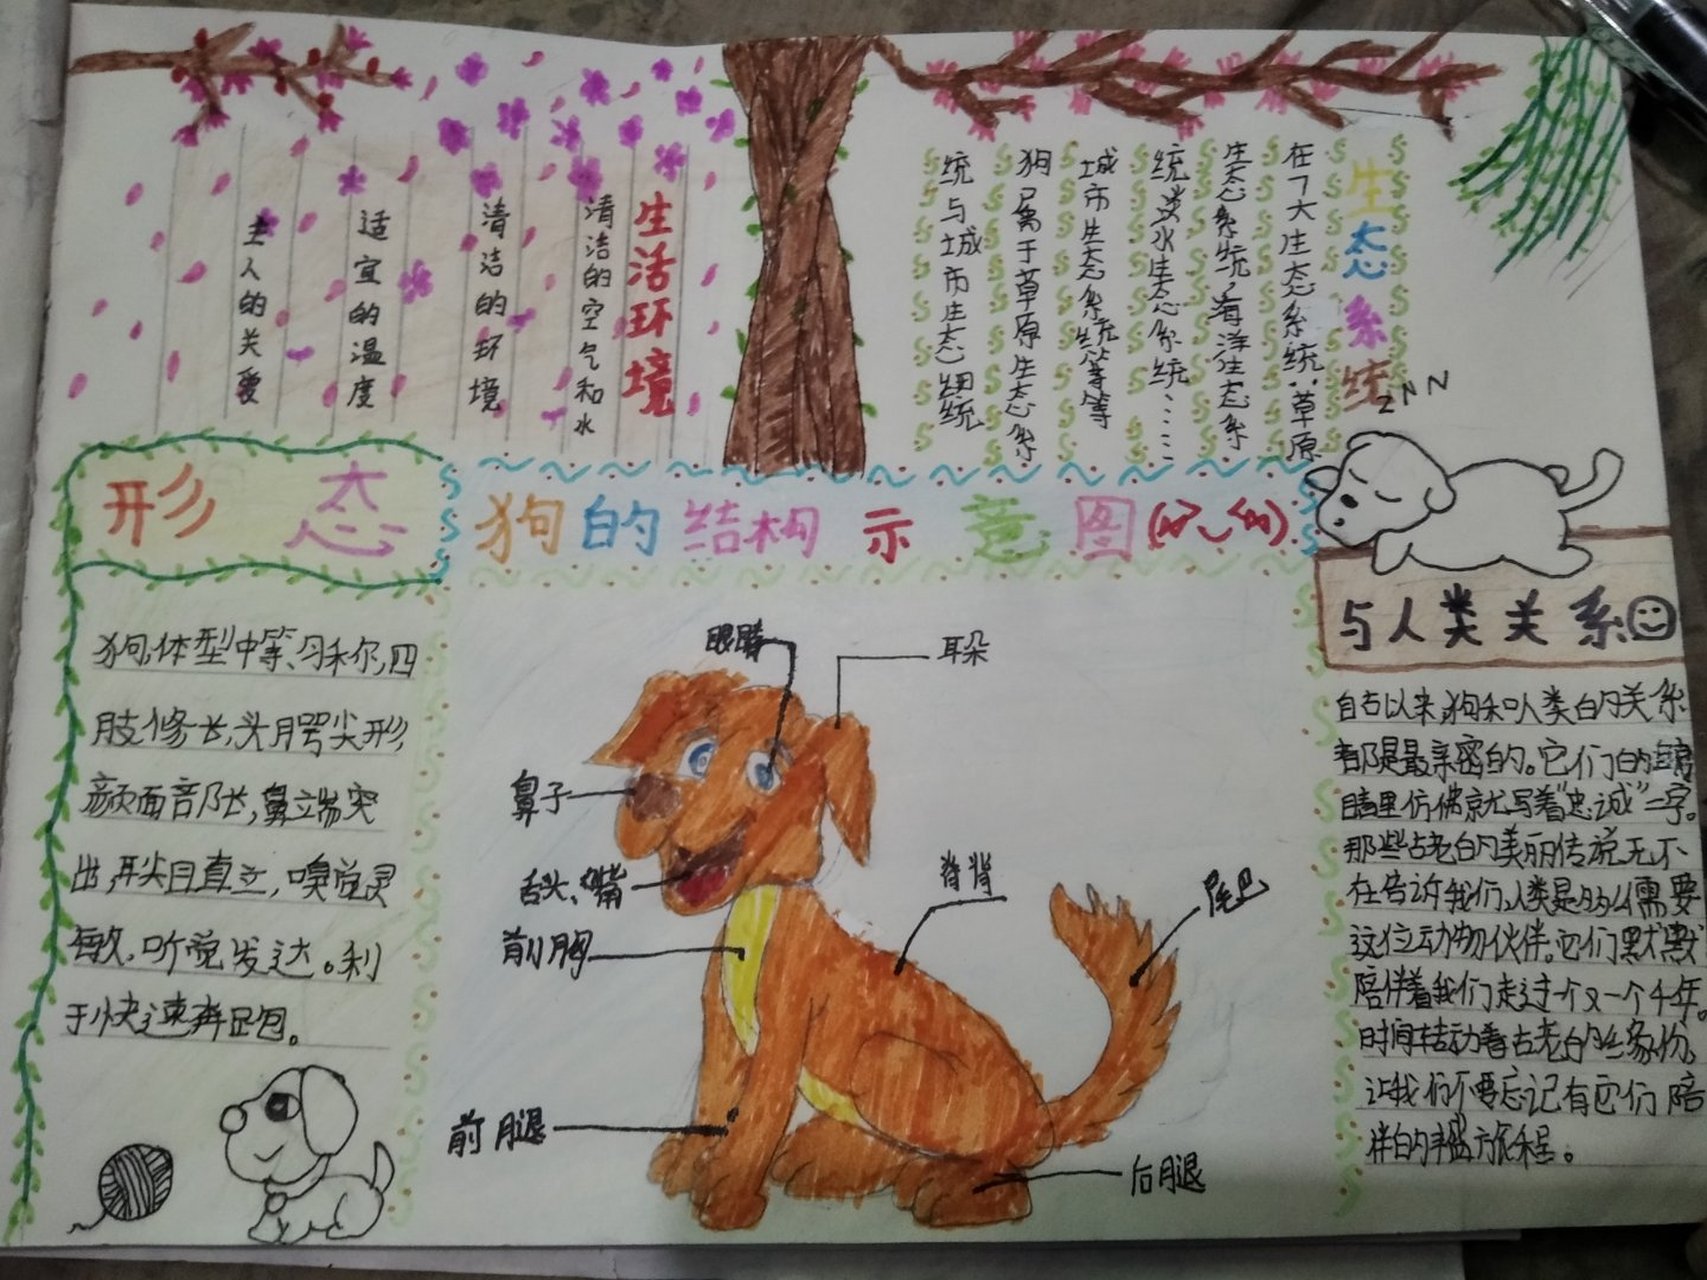 生活环境
清洁的空气和水
清洁的环境
适宜的温度
主人的关爱
生态系统
在7大生态系统:草原
生态系统,海洋生态系
统淡水生态系统……
城市生态系统等等
狗属于草原生态系
统与城市生态
ZNN
形态
狗的结构示意图
狗,体型中等、匀称,四
肢修长,头腭尖形,
颜面部长,鼻端突
出,耳尖且直立,嗅觉灵
敏,听觉发达。利
于快速奔跑。
眼睛
耳朵
鼻子
舌头、嘴
前胸
脊背
尾巴
前腿
后腿
与人类关系
自古以来,狗和人类的关系
都是最亲密的。它们的
睛里仿佛就写着“忠诚”二字。
那些古老的美丽传说无不
在告诉我们,人类是多么需要
这位动物伙伴。它们默默
陪伴着我们走过一个又一个千年。
时间转动着古老的年份,
让我们不要忘记有它们陪
伴的旅程。